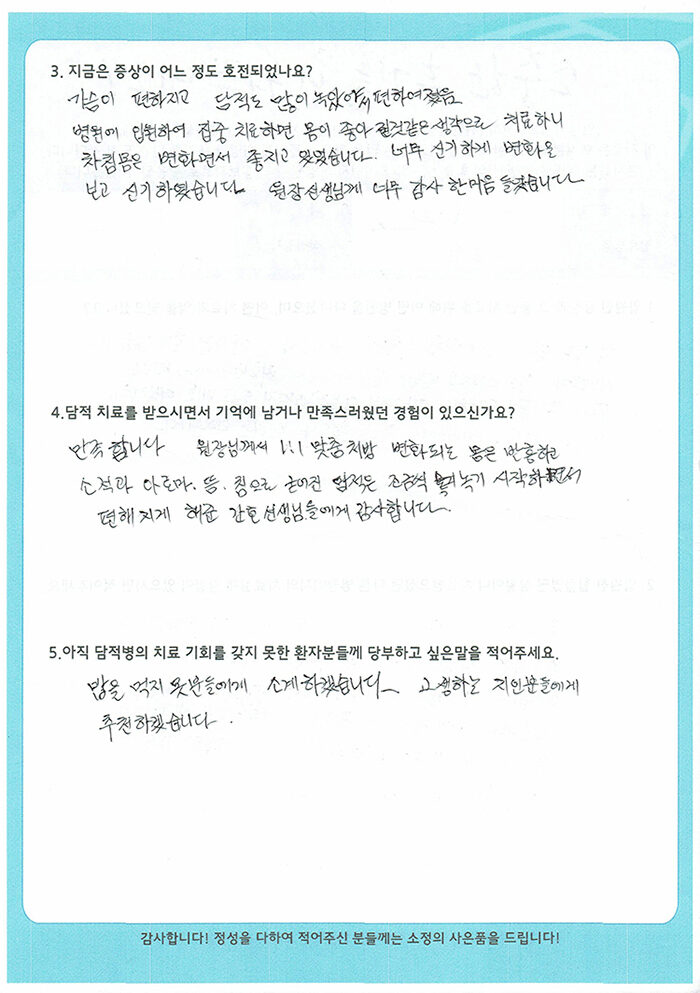 3. 지금은 증상이 어느 정도 호전되었나요?
가슴이 편하지고 담적도 많이 녹았어 편하여졌음
병원에 입원하여 집중 치료하면 몸이 좋아 질것같은 생각으로 치료하니
차츰몸은 변화면서 좋지고 있었습니다. 너무 신기하게 변화을
보고 신기하였습니다. 원장선생님께 너무 감사 한마음 들었습니다
4.담적 치료를 받으시면서 기억에 남거나 만족스러웠던 경험이 있으신가요?
만족 합니다 원장님께서 1:1 맞춤처방 변화되는 몸은 반응하고
소적과 아로마. 뜸. 침으로 굳어진 담적은 조금씩 녹기 시작하면서
편해 지게 해준 간호선생님들에게 감사합니다.
5.아직 담적병의 치료 기회를 갖지 못한 환자분들께 당부하고 싶은말을 적어주세요.
밥을 먹지 못분들에게 소계하겠습니다 고생하는 지인분들에게
추천하겠습니다.
감사합니다! 정성을 다하여 적어주신 분들께는 소정의 사은품을 드립니다!